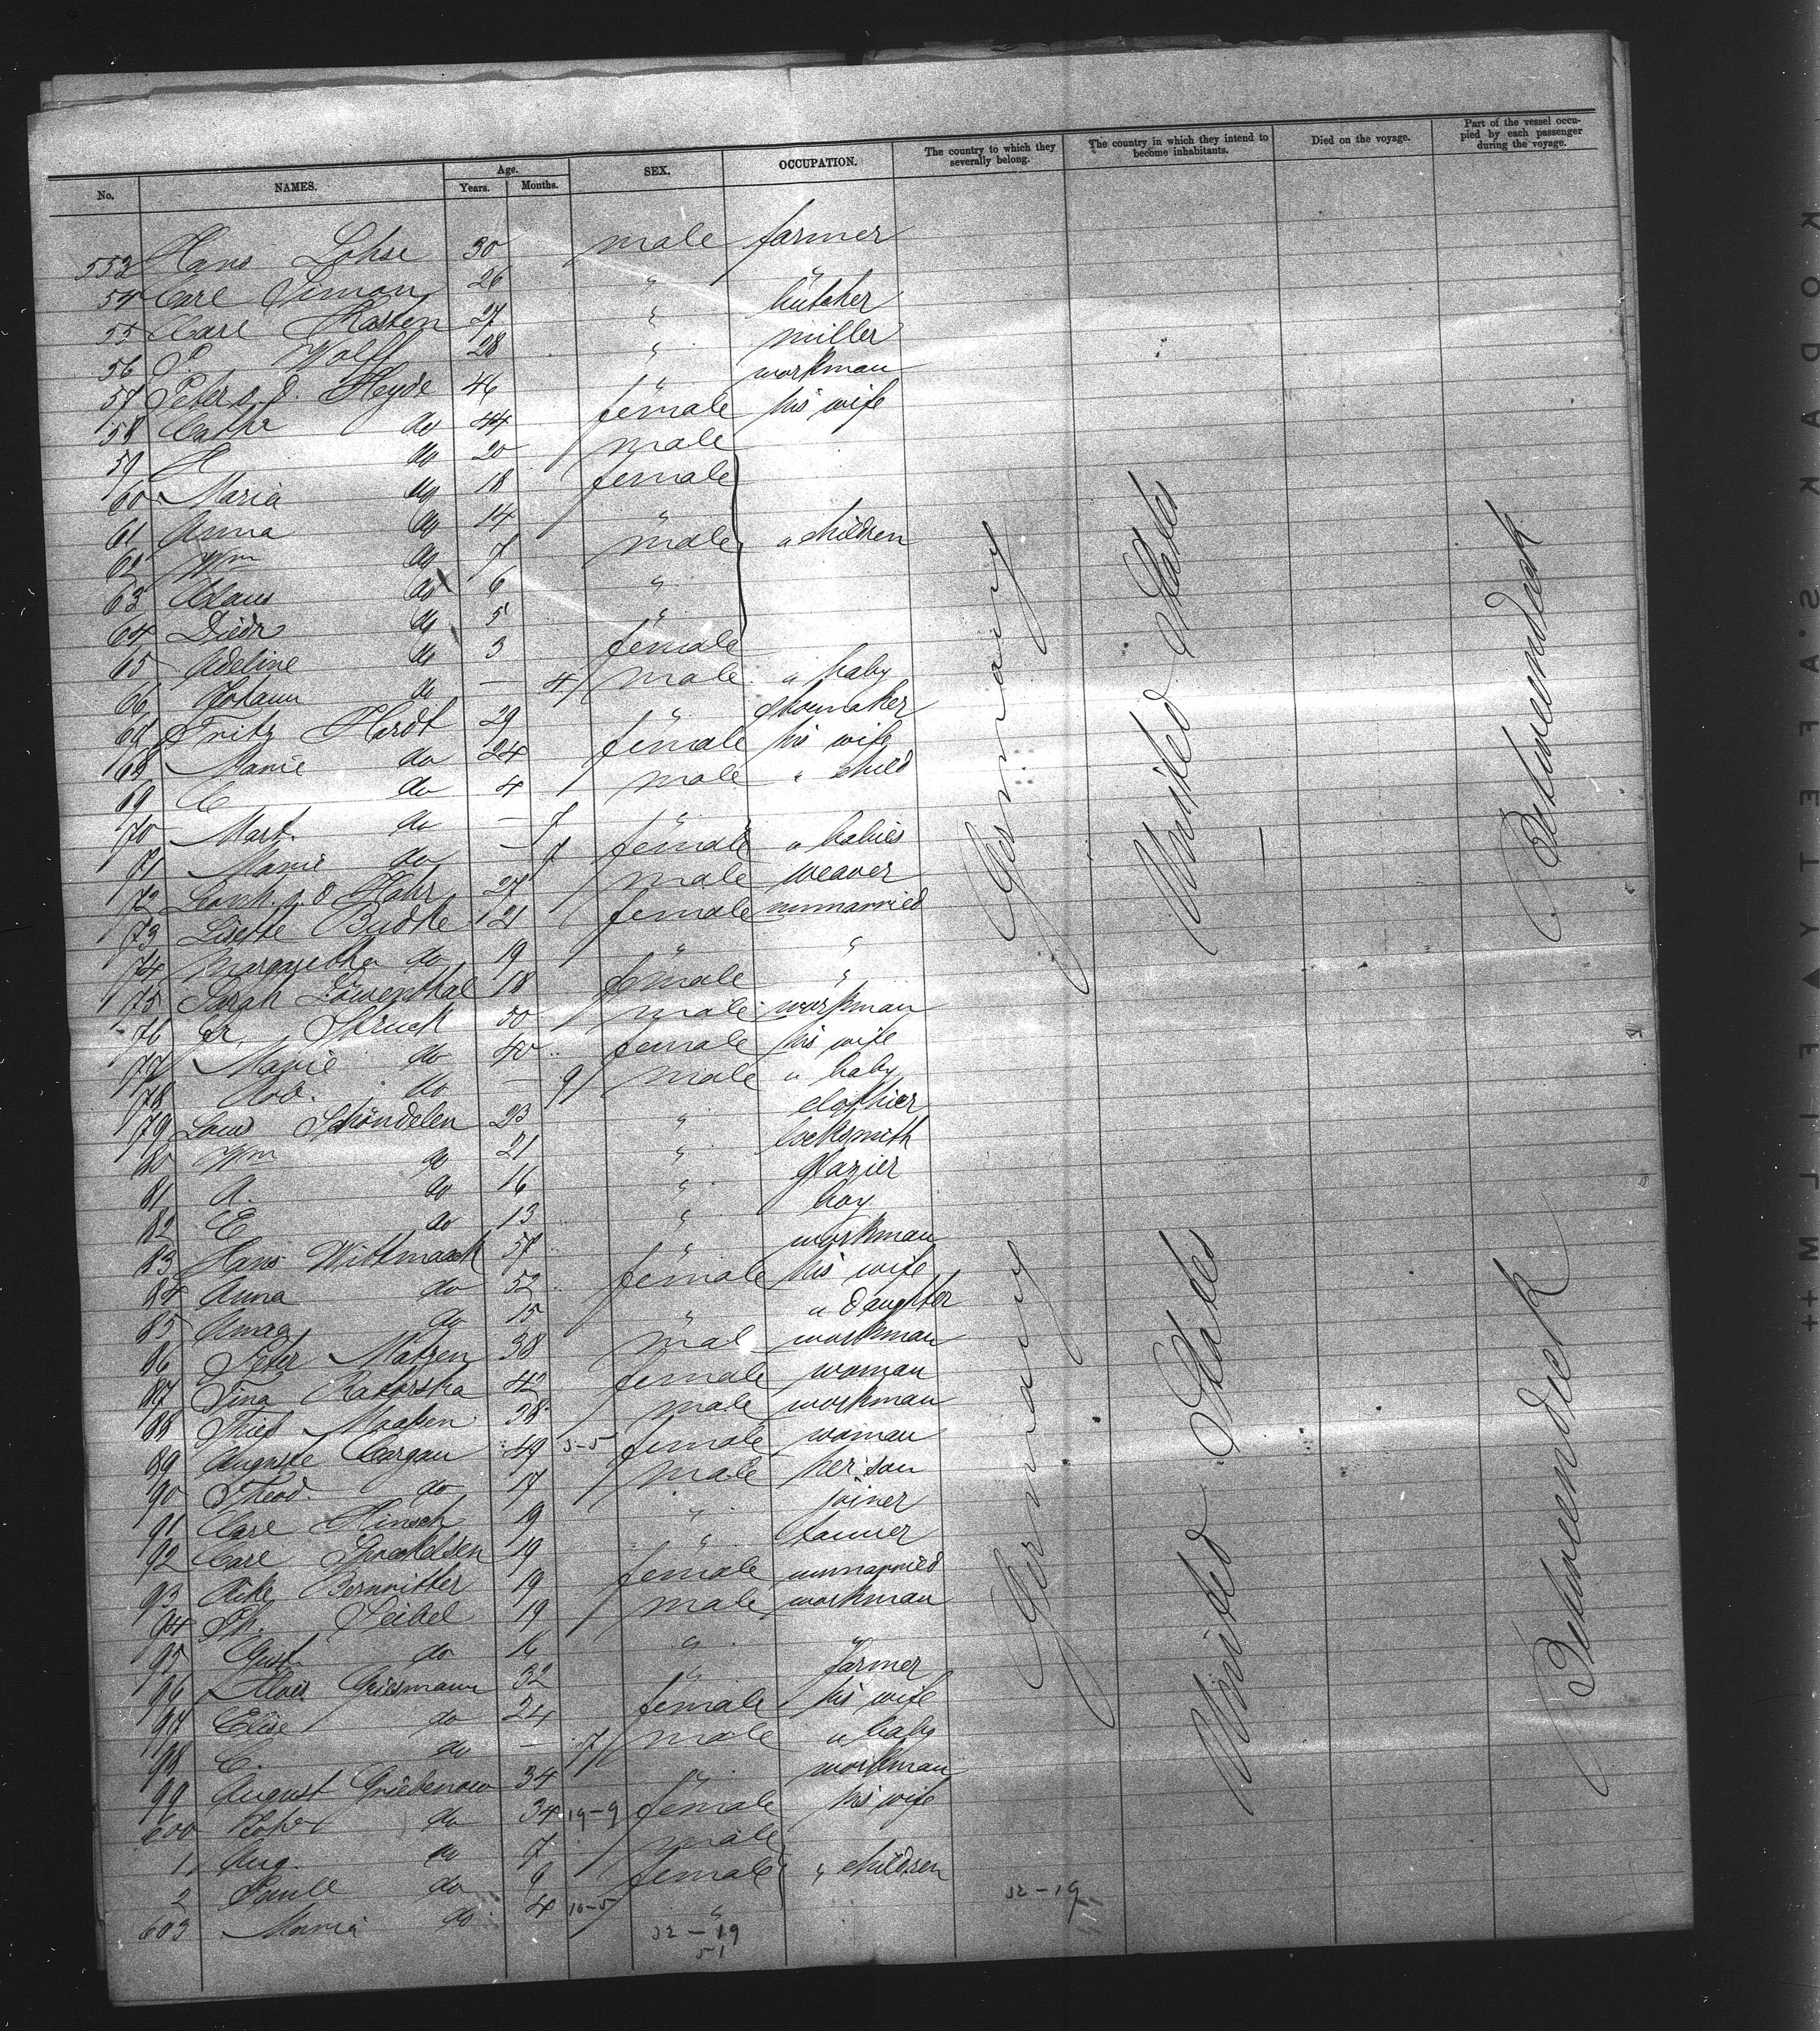 No. NAMES. Age. Years. Months. SEX. OCCUPATION. The country to which they severally belong. The country in which they intend to become inhabitants. Died on the voyage. Part of the vessel occupied by each passenger during the voyage.
553 Hans Lohse 30 male farmer
54 Carl Simon 26 " "
55 Carl Kasten 27 " butcher
56 P. Wolff 28 " miller
57 Peter v. d. Heyde 46 " workman
58 Cathr do 44 female his wife
59 H do 20 male
60 Maria do 18 female
61 Anna do 14 "
62 Wm do 7 male " children
63 Claus do 6 "
64 Diedr do 5 "
65 Adeline do 3 female
66 Johann do — 4 male " baby
67 Fritz Hardt 29 " shoemaker
68 Marie do 24 female his wife
69 C do 4 male " child
70 Mart. do — "
71 Marie do — female " babies
72 Leonh. v. d Hohr 27 male weaver
73 Lisette Budke 21 female unmarried
74 Margaretha do 19 " "
75 Sarah Löwenthal 18 female "
76 Fr. Struck 50 male workman
77 Marie do 40 female his wife
78 Rod. do — 9 male " baby
79 Louis Schöndelen 23 " clothier
80 Wm do 21 " locksmith
81 A. do 16 " glazier
82 E do 13 " boy
83 Hans Wittmaack 57 " workman
84 Anna do 52 female his wife
85 do 15 " " daughter
86 Peter Matzen 38 mal workman
87 Tina 42 female woman
88 Maassen 38 male workman
89 Auguste Cargau 49 5-5 female woman
90 Theod. do 17 male her son
91 Carl Hinsch 19 " joiner
92 Carl 19 " tanner
93 Rike 19 female unmarried
94 Ph. Seibel 19 male workman
95 Gust do 16 " "
96 Alois Griesmann 32 " farmer
97 Elise do 24 female his wife
98 C. do — 7 male " baby
99 August Griebenow 34 " workman
600 do 34 19-9 female his wife
1 Aug. do 7 male
2 do 6 female " children
603 Maria do 4 10-5 "
Germany
United States
Betweendeck
Germany
United States
Betweendeck
32-19
32-19
51
KODAK·S·A·F·E·T·Y▼F·I·L·M++